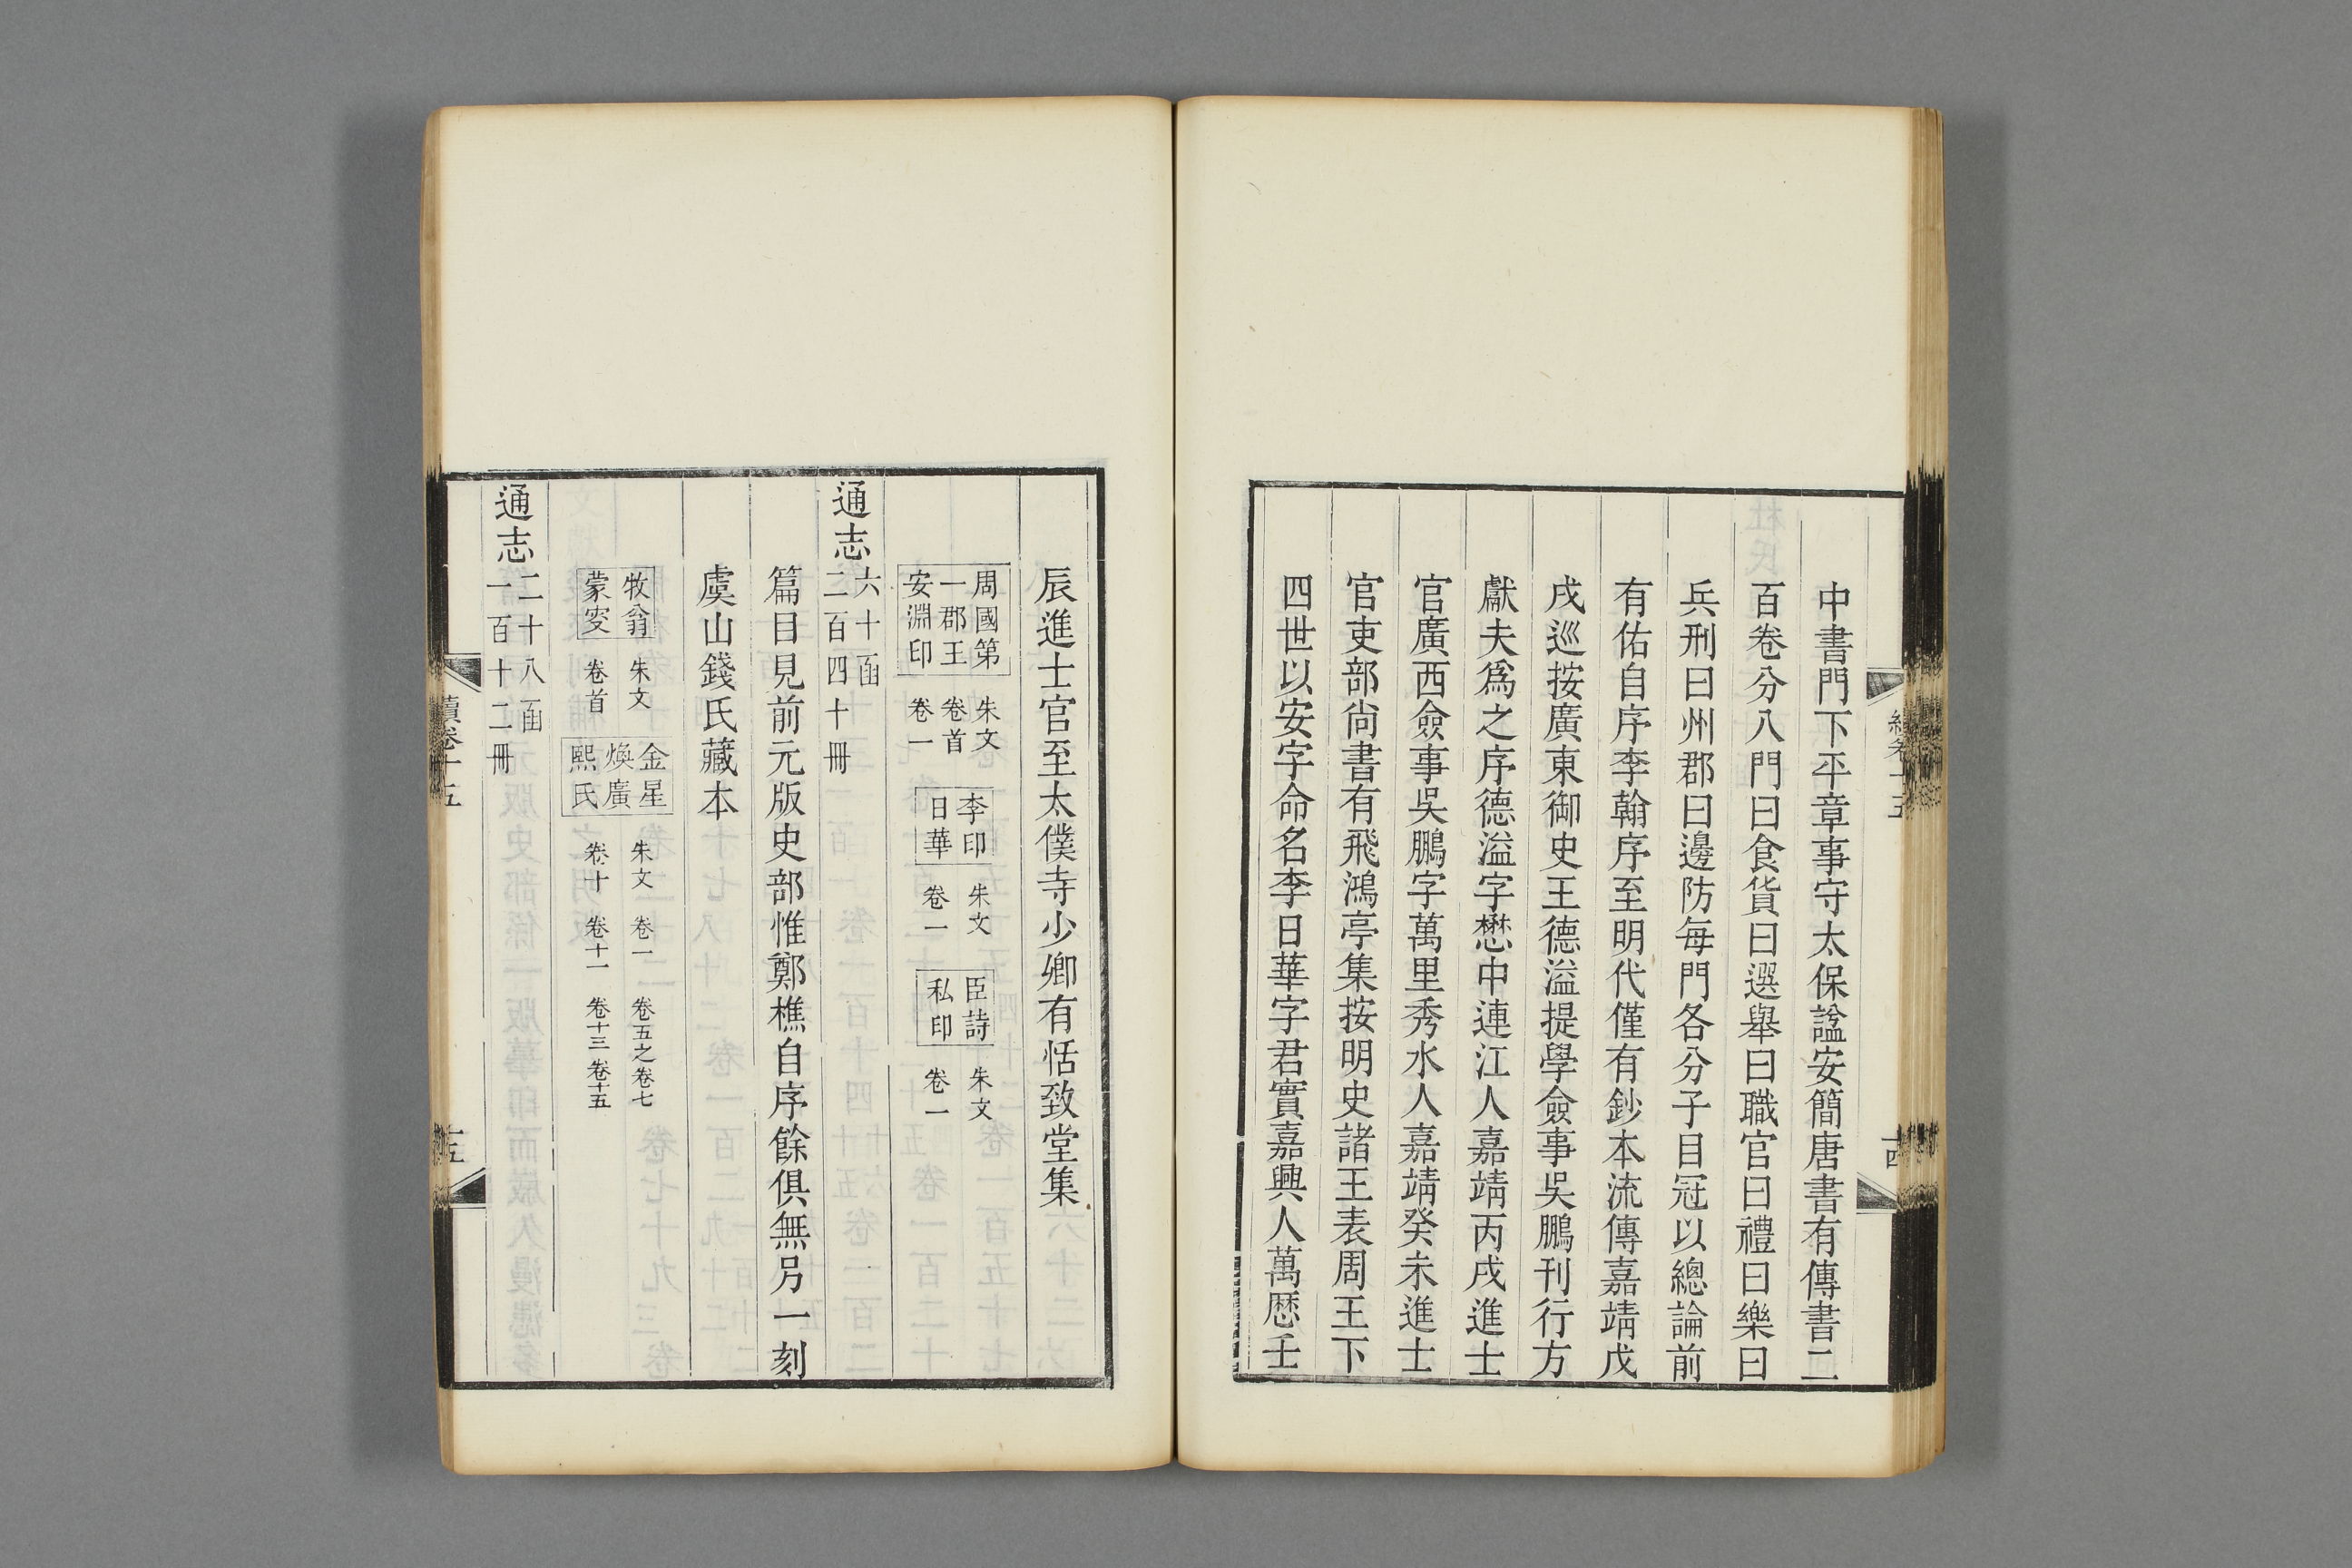 中書門下平章事守太保諡安簡唐書有傳書二
百卷分八門曰食貨曰選舉曰職官曰禮曰樂曰
兵刑曰州郡曰邊防每門各分子目冠以總論前
有佑自序李翰序至明代僅有鈔本流傳嘉靖戊
戌巡按廣東御史王德溢提學僉事吳鵬刊行方
獻夫為之序德溢字懋中連江人嘉靖丙戌進士
官廣西僉事吳鵬字萬里秀水人嘉靖癸未進士
官吏部尚書有飛鴻亭集按明史諸王表周王下
四世以安字命名李日華字君實嘉興人萬歷壬
辰進士官至太僕寺少卿有恬致堂集
周國第
一郡王
安淵印
朱文
卷首
卷一
李印
日華
朱文
卷一
臣詩
私印
朱文
卷一
通志
六十函
二百四十冊
篇目見前元版史部惟鄭樵自序餘俱無另一刻
虞山錢氏藏本
牧翁
蒙叟
朱文
卷首
金星
煥廣
熙氏
朱文 卷一 卷五之卷七
卷十 卷十一 卷十三 卷十五
通志
二十八函
一百十二冊
續卷十五